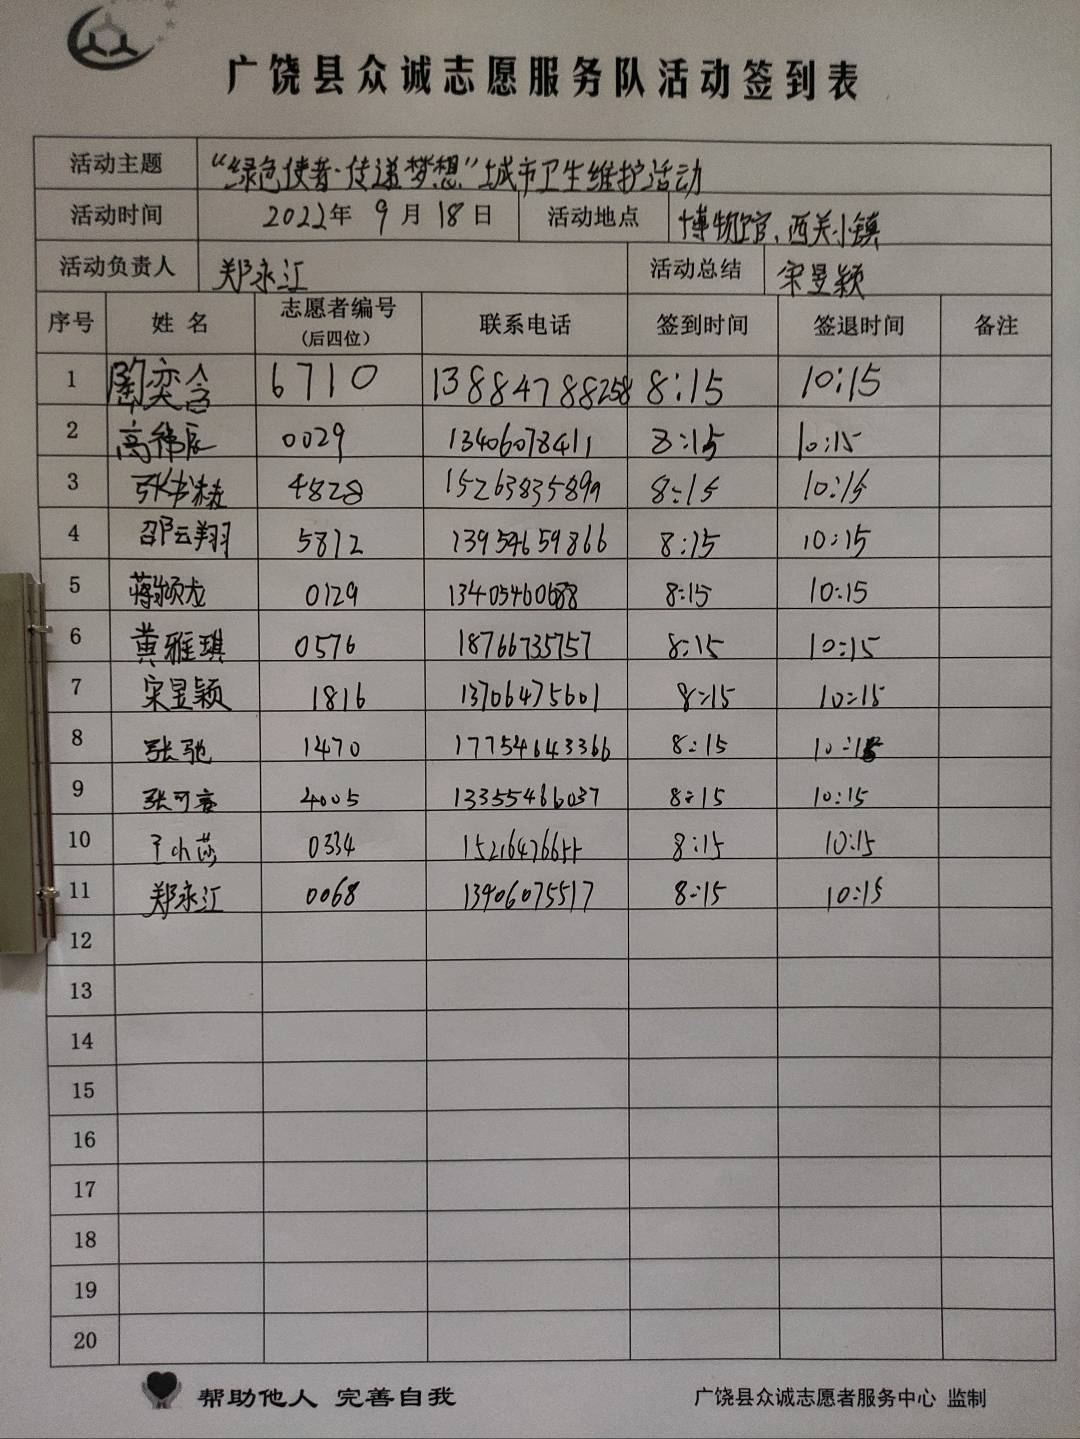 广饶县众诚志愿服务队活动签到表
活动主题 “绿色使者·传递梦想”城市卫生维护活动
活动时间 2022年 9月 18日 活动地点 博物馆、西关小镇
活动负责人 郑永江 活动总结 宋昱颖
序号 姓名 志愿者编号（后四位） 联系电话 签到时间 签退时间 备注
1 陶奕含 6710 13884788258 8:15 10:15
2 高伟辰 0029 13406078411 8:15 10:15
3 张书 4828 15263835899 8:15 10:15
4 邵云翔 5812 13954659866 8:15 10:15
5 蒋 龙 0129 13405460688 8:15 10:15
6 黄雅琪 0576 18766735757 8:15 10:15
7 宋昱颖 1816 13706475601 8:15 10:15
8 张驰 1470 17754643366 8:15 10:15
9 张可 4005 13355486037 8:15 10:15
10 莎 0334 8:15 10:15
11 郑永江 0068 13406075517 8:15 10:15
12
13
14
15
16
17
18
19
20
帮助他人 完善自我 广饶县众诚志愿者服务中心 监制